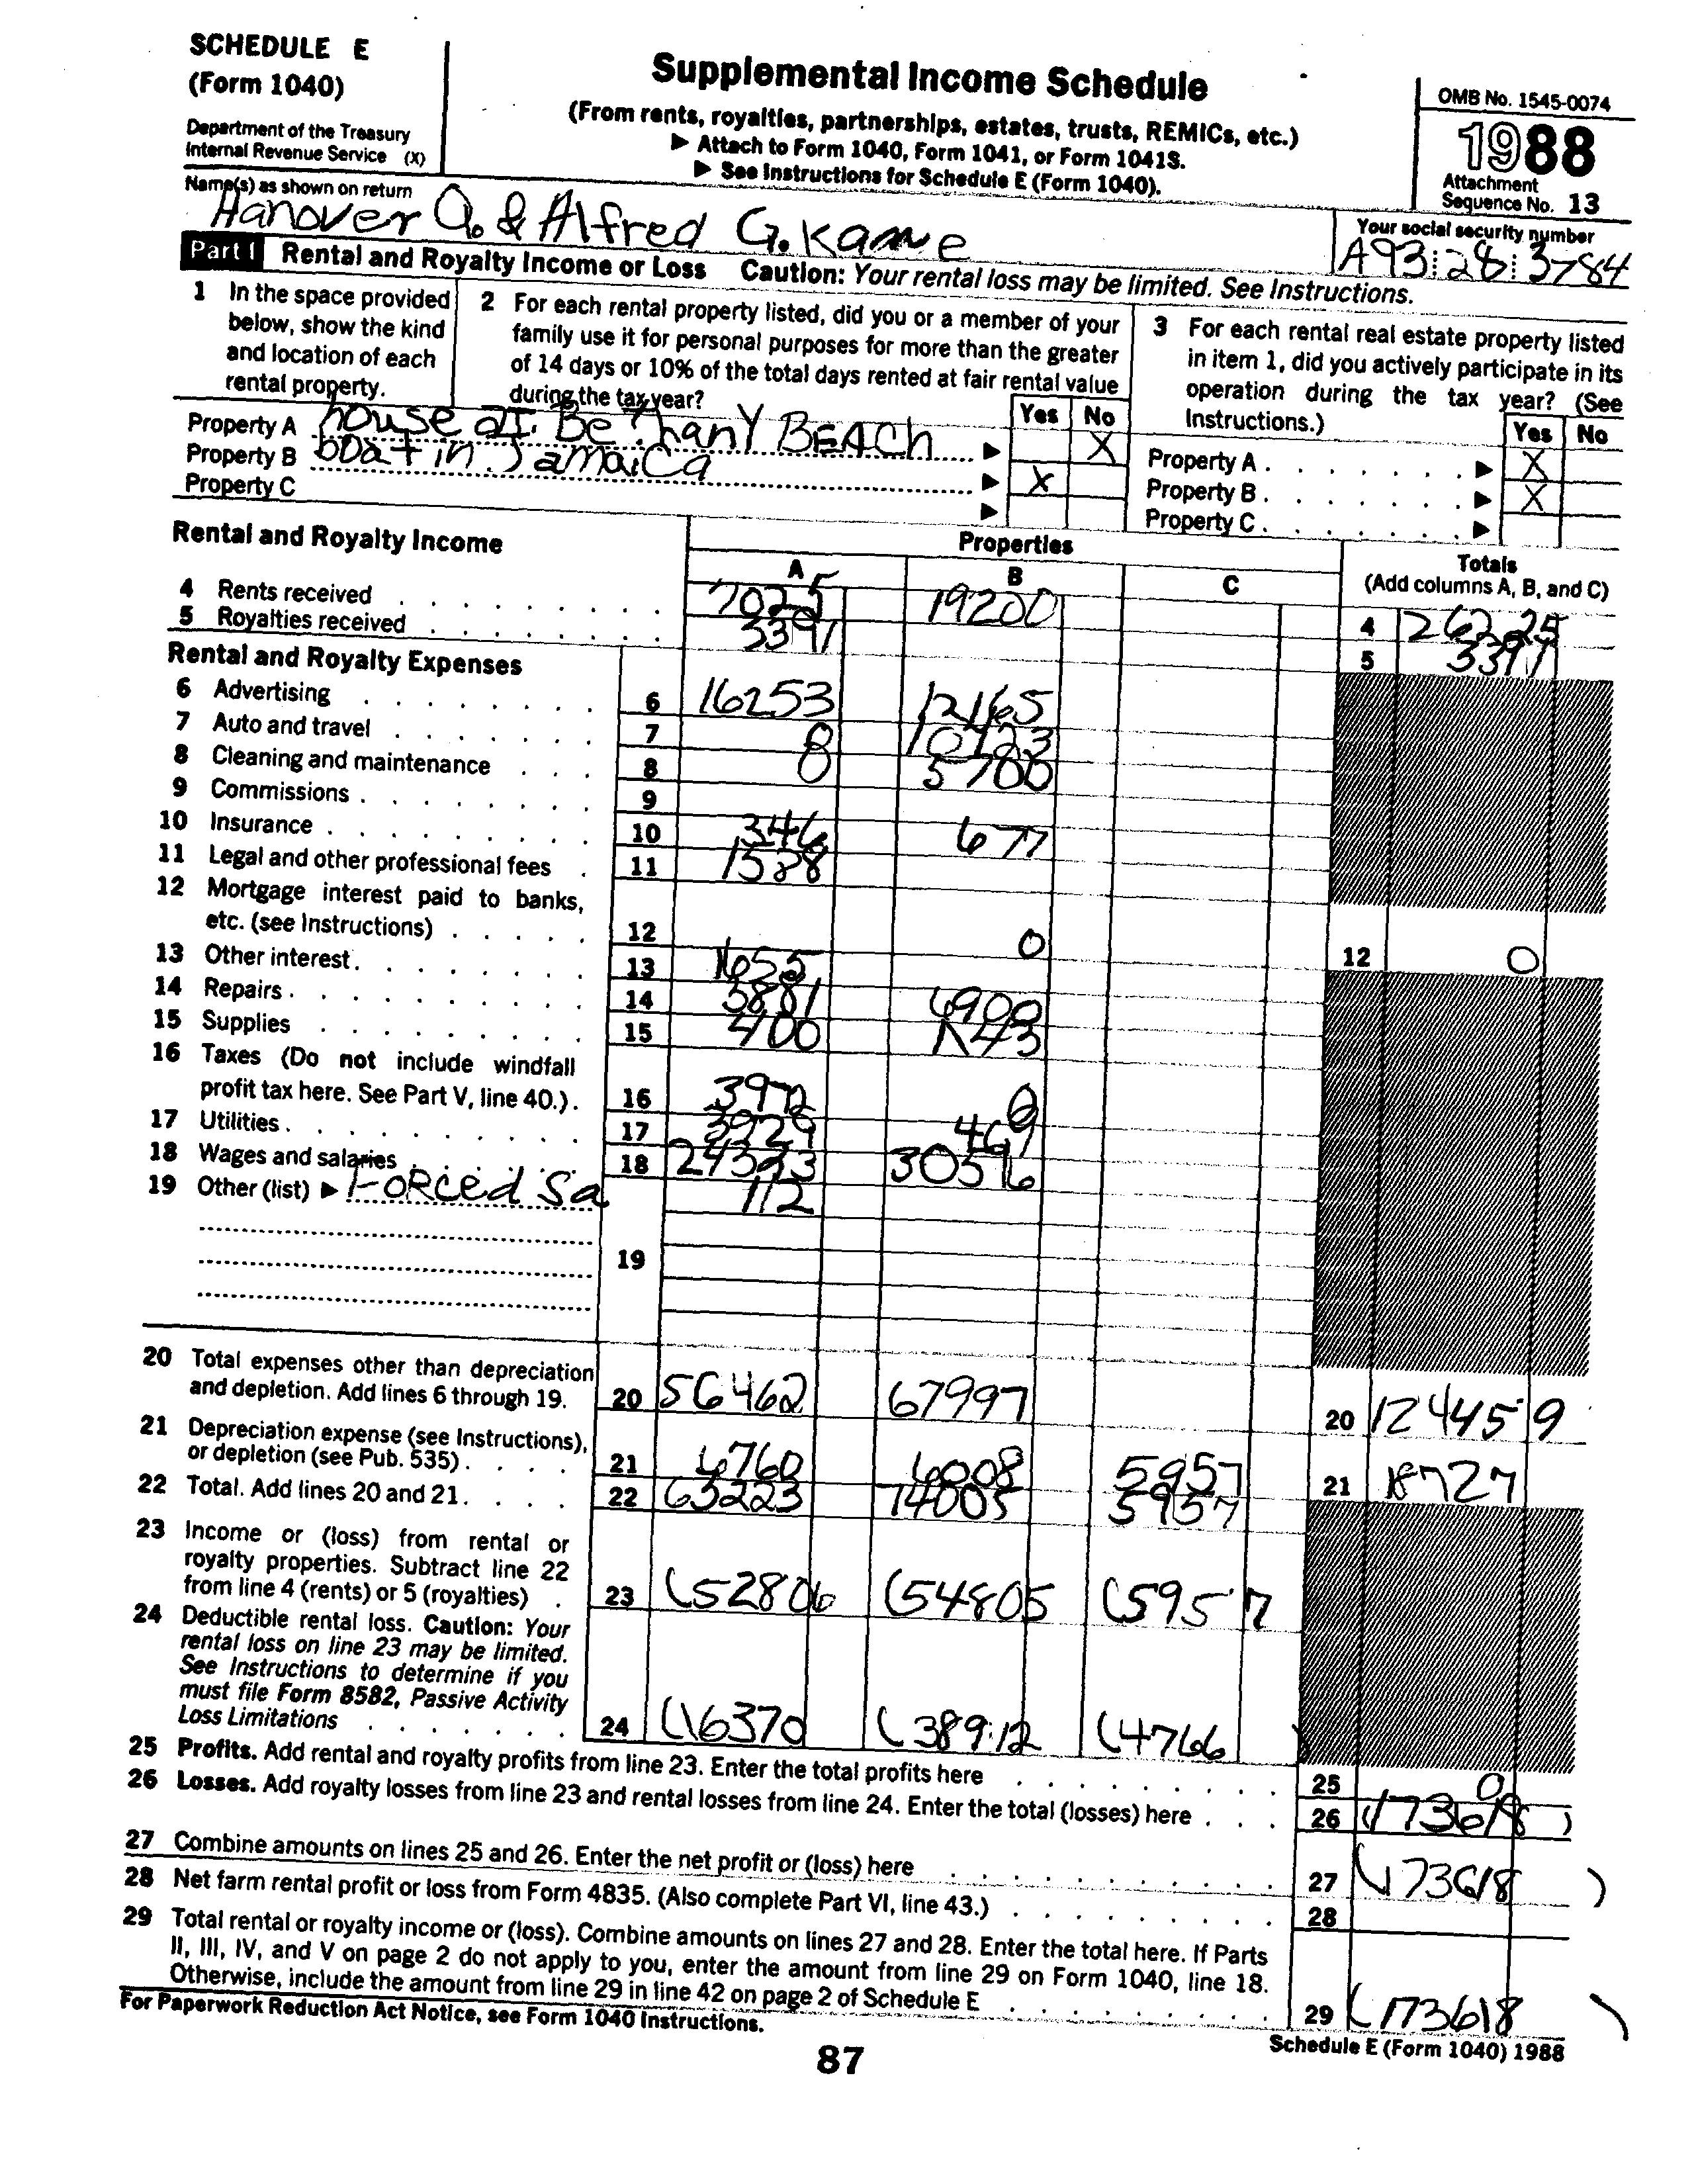 SCHEDULE E
(Form 1040)
Department of the Treasury
Internal Revenue Service (X)
Supplemental Income Schedule
(From rents, royalties, partnerships, estates, trusts, REMICs, etc.)
▶ Attach to Form 1040, Form 1041, or Form 1041S.
▶ See Instructions for Schedule E (Form 1040).
OMB No. 1545-0074
1988
Attachment
Sequence No. 13
Name(s) as shown on return
Hanover Q. & Alfred G. Kane
Your social security number
A93 28 3784
Part I Rental and Royalty Income or Loss Caution: Your rental loss may be limited. See Instructions.
1 In the space provided
below, show the kind
and location of each
rental property.
2 For each rental property listed, did you or a member of your
family use it for personal purposes for more than the greater
of 14 days or 10% of the total days rented at fair rental value
during the tax year?
Yes No
3 For each rental real estate property listed
in item 1, did you actively participate in its
operation during the tax year? (See
Instructions.)
Yes No
Property A house at Bethany BEACh ▶ X
Property B boat in Jamaica ▶ X
Property C ▶
Property A . . . . . . . ▶ X
Property B . . . . . . . ▶ X
Property C . . . . . . . ▶
Rental and Royalty Income
Properties
A B C
Totals
(Add columns A, B, and C)
4 Rents received 7025 19200 4 26225
5 Royalties received 3391 5 3391
Rental and Royalty Expenses
6 Advertising 6 16253 12165
7 Auto and travel 7 8 10423
8 Cleaning and maintenance 8 0 5700
9 Commissions 9
10 Insurance 10 346 677
11 Legal and other professional fees 11 1528
12 Mortgage interest paid to banks,
etc. (see Instructions) 12 0 12 0
13 Other interest 13 1655
14 Repairs 14 3881 6900
15 Supplies 15 400
16 Taxes (Do not include windfall
profit tax here. See Part V, line 40.) 16 3972 0
17 Utilities 17 3929 469
18 Wages and salaries 18 24393 30516
19 Other (list) ▶ Forced Sa 112
19
20 Total expenses other than depreciation
and depletion. Add lines 6 through 19. 20 56462 67997 20 124459
21 Depreciation expense (see Instructions),
or depletion (see Pub. 535) 21 6760 6008 5957 21 18727
22 Total. Add lines 20 and 21. 22 63223 74005 5957
23 Income or (loss) from rental or
royalty properties. Subtract line 22
from line 4 (rents) or 5 (royalties) 23 (52806 (54805 (5957
24 Deductible rental loss. Caution: Your
rental loss on line 23 may be limited.
See Instructions to determine if you
must file Form 8582, Passive Activity
Loss Limitations 24 (16370 (38912 (4766 )
25 Profits. Add rental and royalty profits from line 23. Enter the total profits here 25 0
26 Losses. Add royalty losses from line 23 and rental losses from line 24. Enter the total (losses) here 26 (173618 )
27 Combine amounts on lines 25 and 26. Enter the net profit or (loss) here 27 (173618 )
28 Net farm rental profit or loss from Form 4835. (Also complete Part VI, line 43.) 28
29 Total rental or royalty income or (loss). Combine amounts on lines 27 and 28. Enter the total here. If Parts
II, III, IV, and V on page 2 do not apply to you, enter the amount from line 29 on Form 1040, line 18.
Otherwise, include the amount from line 29 in line 42 on page 2 of Schedule E 29 (173618 )
For Paperwork Reduction Act Notice, see Form 1040 Instructions.
Schedule E (Form 1040) 1988
87